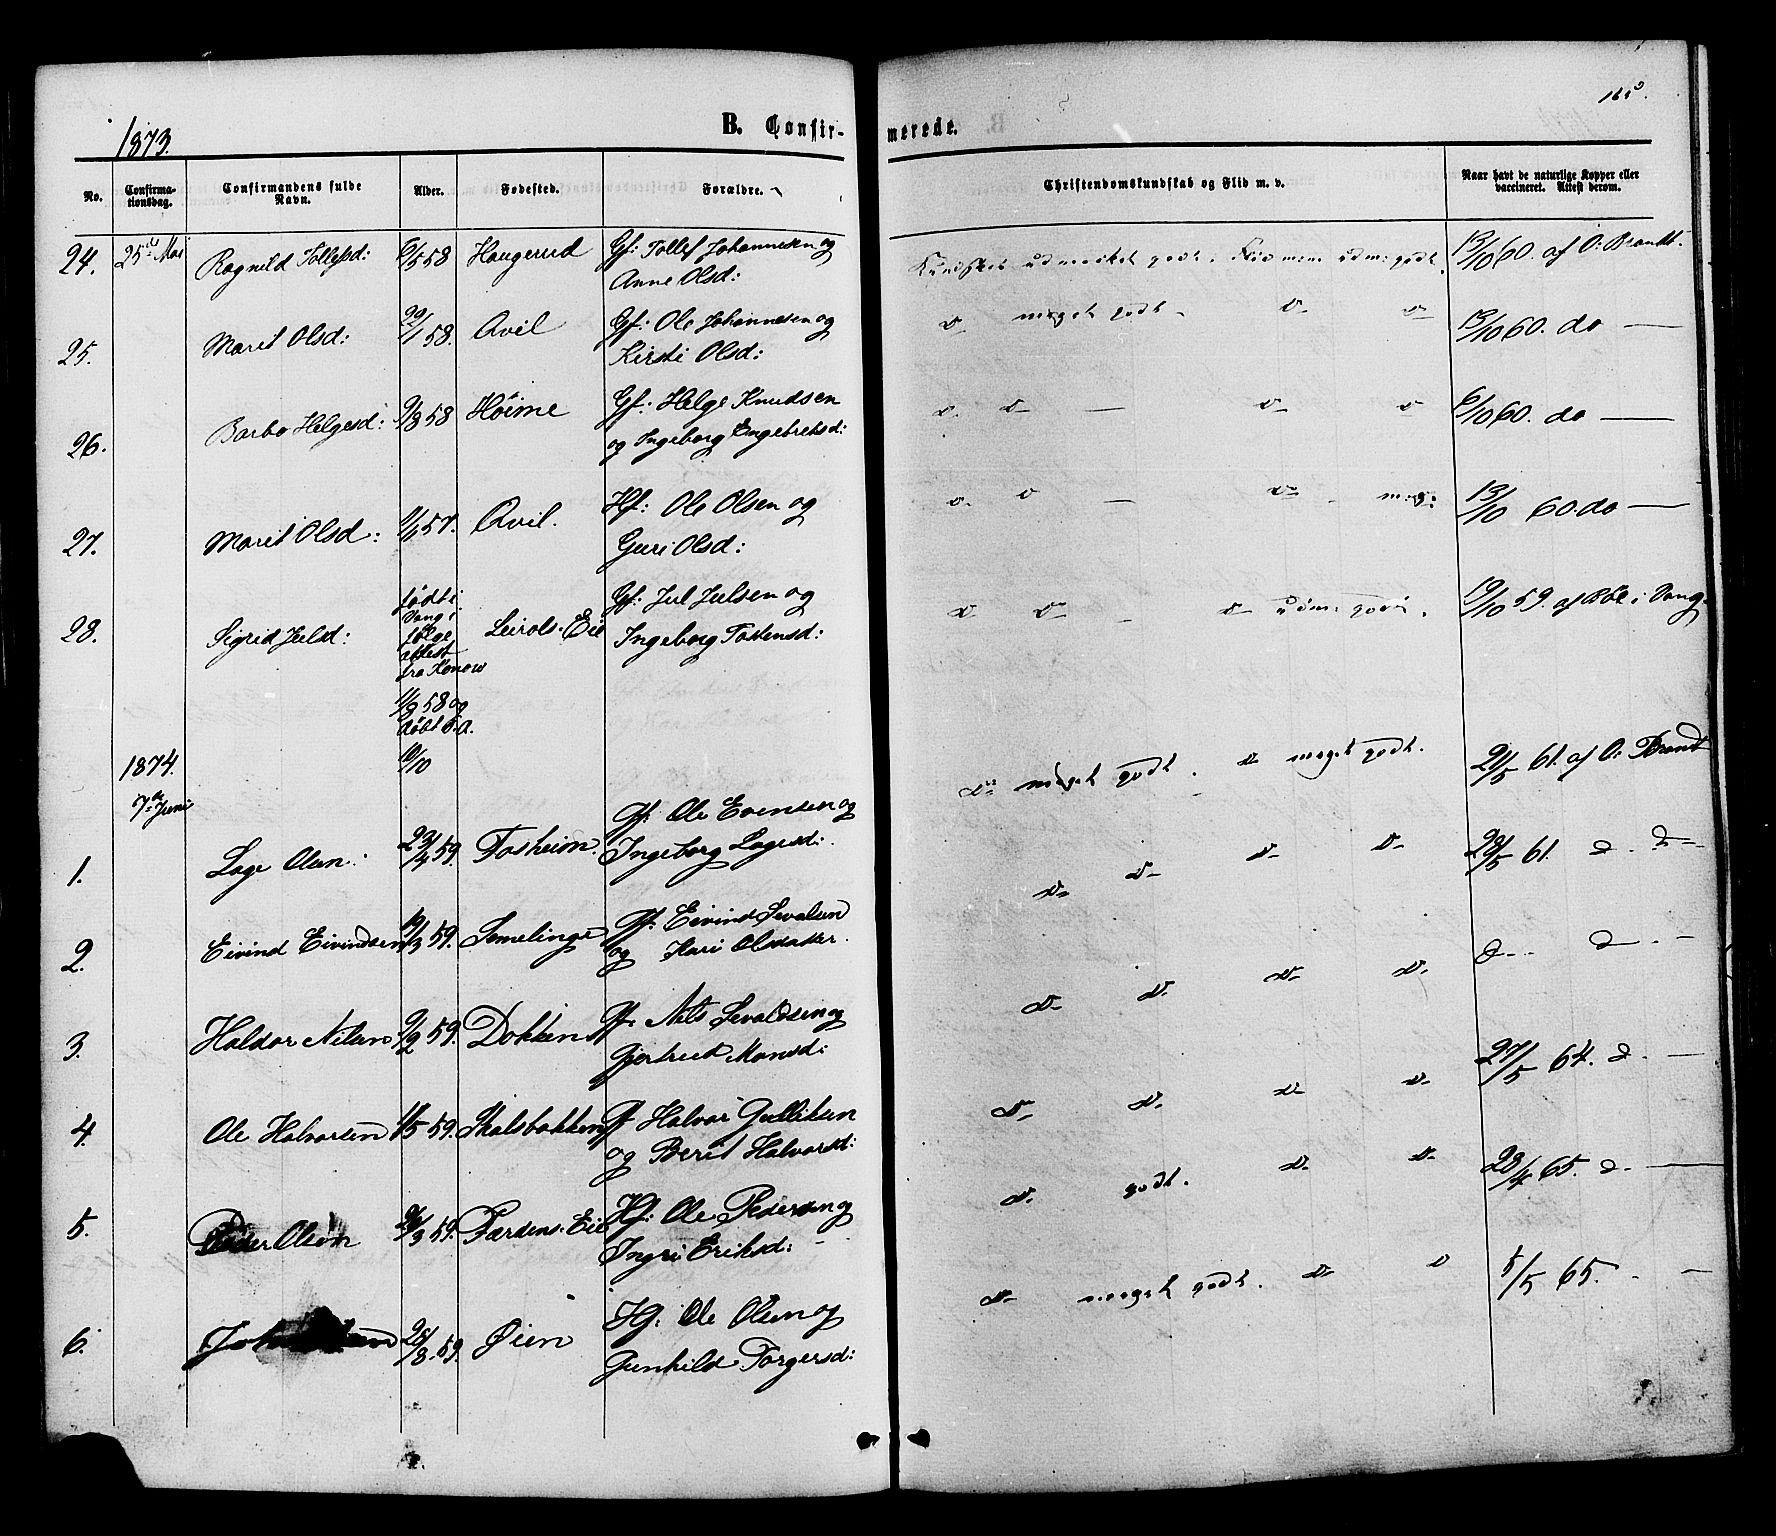 165
1873.
B. Confir-
merede.
No.
Confirma-
tionsdag.
Confirmandens fulde
Navn.
Alder.
Fødested.
Forældre.
Christendomskundskab og Flid m. v.
Naar havt de naturlige Kopper eller
vaccineret. Attest derom.
24. 25de Mai Ragnild Tollefsd: 6/5 58 Haugerud Gf: Tollef Johannesen og
Anne Olsd:
Kundskab udmærket godt. Flid m.m. udm: godt. 13/10 60. af O: Brandt.
25. Marit Olsd: 22/1 58. Qvil Gf: Ole Johannesen og
Kirsti Olsd:
d- meget godt - d- d- 13/10 60. do —
26. Barbo Helgesd: 9/8 58 Høime Gf: Helge Knudsen
og Ingeborg Engebretsd:
d. d- — d- d 6/10 60. do —
27. Marit Olsd: 1/1 57. Qvil. Hf: Ole Olsen og
Guri Olsd:
d. d — d- - meg: 13/10 60 do —
28. Sigrid Julsd: født i
Vang i
følge
attest
fra Konow
11/9 58 og
døbt s.A.
10/10
Leirols-Eie Gf: Jul Julsen og
Ingeborg Tostensd:
d d- - d- udm: godt. 19/10 59. af Røe i Vang.
1874.
7de Juni
1. Lage Olsen 23/4 59. Fosheim. Gf: Ole Evensen og
Ingeborg Lagesd:
d- meget godt. d- meget godt. 21/5 61. af O: Brandt
2. Eivind Eivindsen 19/3 59. Semelinge Gf. Eivind Sevalsen
og Kari Olsdatter.
d- d- d- d- 28/5 61. d. d-
3. Haldor Nilsen 9/2 59. Dokken Gf. Nils Sevaldsen og
Gjertrud Monsd:
d- d- d- d- d- d- -
4. Ole Halvorsen 1/5 59. Skalsbakken Gf Halvor Gulliksen
og Berit Halvorsd:
d- d- d- d- 27/5 64. d. —
5. Peder Olsen 21/3 59. Færdens-Eie Hf: Ole Pedersen og
Ingri Eriksd:
d- godt. d- d- 28/4 65. d. —
6. 26/8 59. Øien Hf. Ole Olsen og
Gunhild Torgersd:
d- meget godt. d- d 5/5 65. - —